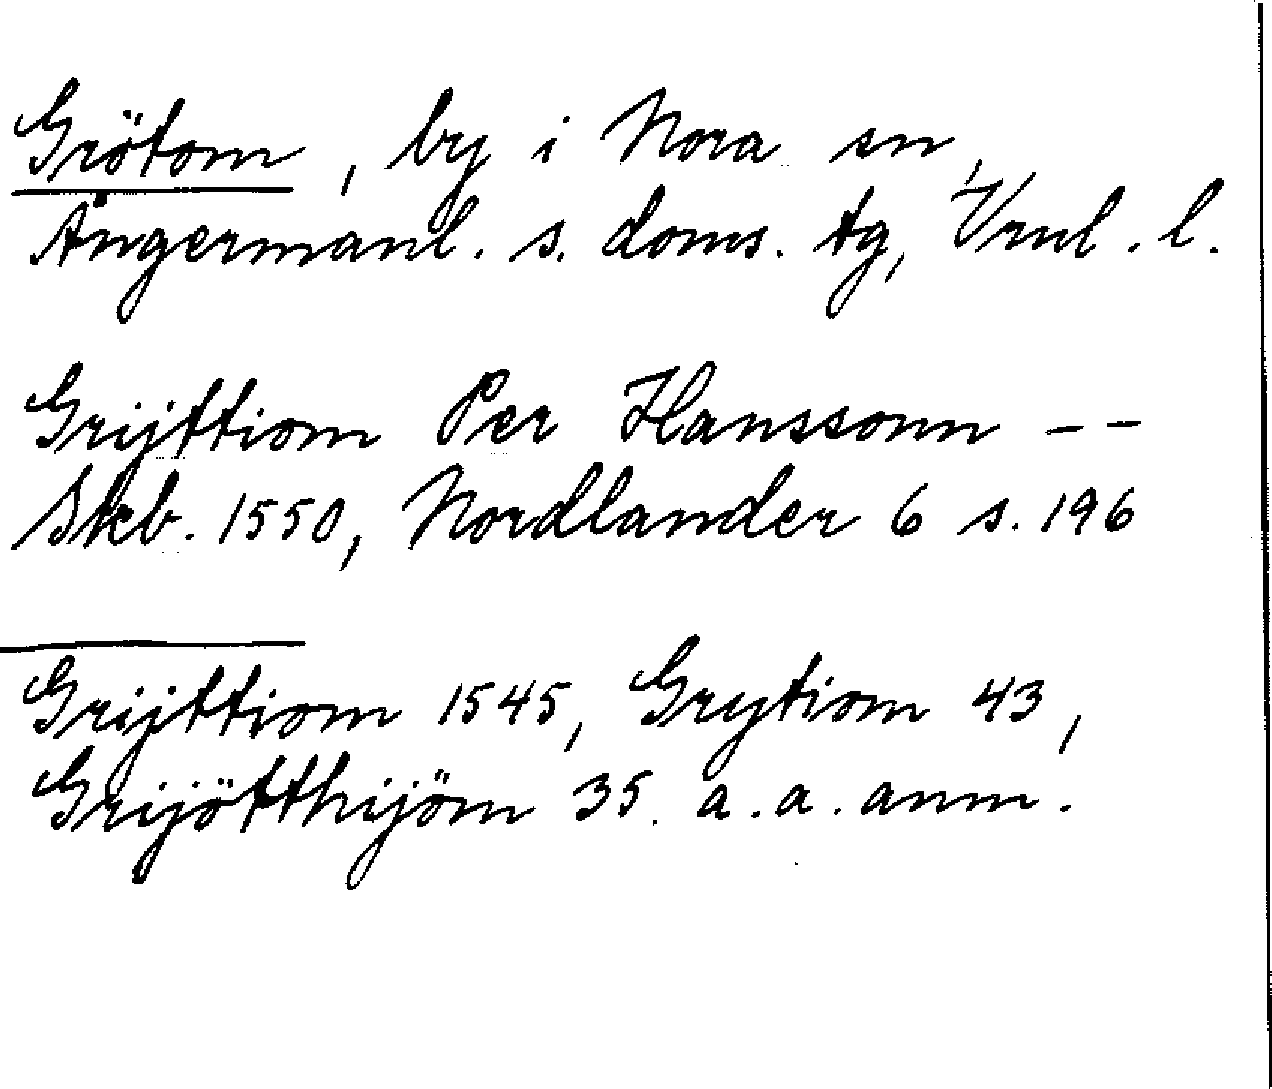 Grötom, by i Nora sn,
Ångermanl. s. doms. tg, Vrnl. l.
Grijttiom Per Hanssonn --
Skb. 1550, Nordlander 6 s. 196
Grijttiom 1545, Grytiom 43,
Grijötthijöm 35. a. a. anm.